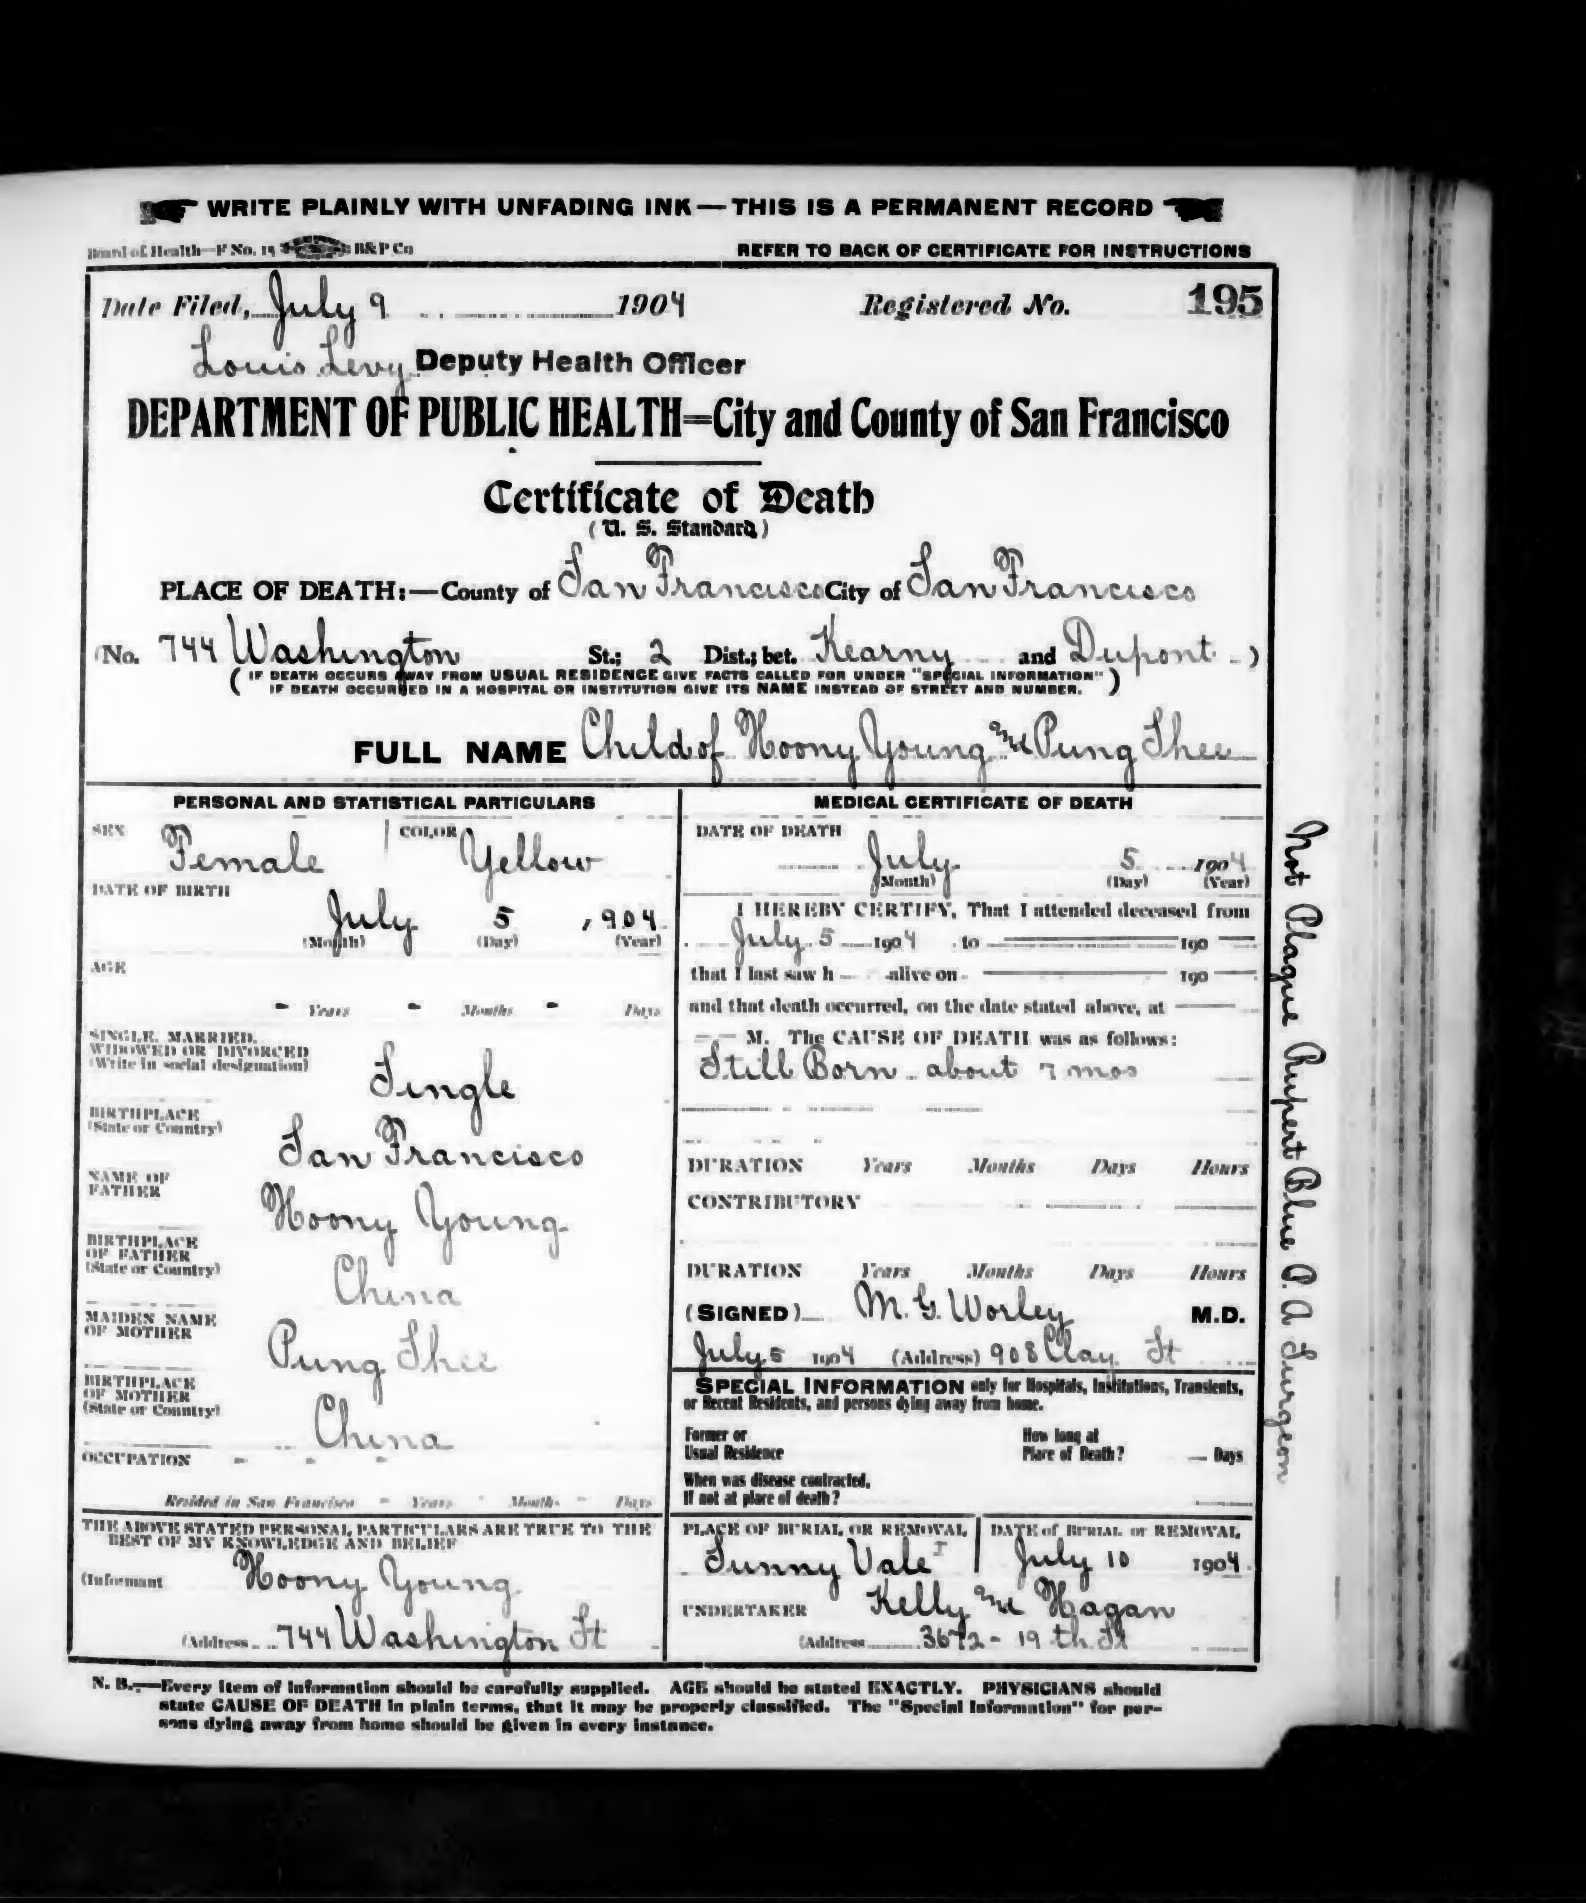 WRITE PLAINLY WITH UNFADING INK—THIS IS A PERMANENT RECORD
Board of Health—F No. 15 B&P Co
REFER TO BACK OF CERTIFICATE FOR INSTRUCTIONS
Date Filed, July 9 1904 Registered No. 195
Louis Levy Deputy Health Officer
DEPARTMENT OF PUBLIC HEALTH=City and County of San Francisco
Certificate of Death
(U. S. Standard)
PLACE OF DEATH:—County of San Francisco City of San Francisco
(No. 744 Washington St.; 2 Dist.; bet. Kearny and Dupont )
( IF DEATH OCCURS AWAY FROM USUAL RESIDENCE GIVE FACTS CALLED FOR UNDER "SPECIAL INFORMATION"
IF DEATH OCCURRED IN A HOSPITAL OR INSTITUTION GIVE ITS NAME INSTEAD OF STREET AND NUMBER. )
FULL NAME Child of Hoony Young and Pung Shee
PERSONAL AND STATISTICAL PARTICULARS
SEX Female COLOR Yellow
DATE OF BIRTH
July 5 , 904
(Month) (Day) (Year)
AGE
- Years - Months - Days
SINGLE, MARRIED,
WIDOWED OR DIVORCED
(Write in social designation)
Single
BIRTHPLACE
(State or Country)
San Francisco
NAME OF
FATHER
Hoony Young
BIRTHPLACE
OF FATHER
(State or Country)
China
MAIDEN NAME
OF MOTHER
Pung Shee
BIRTHPLACE
OF MOTHER
(State or Country)
China
OCCUPATION - - -
Resided in San Francisco - Years - Months - Days
THE ABOVE STATED PERSONAL PARTICULARS ARE TRUE TO THE
BEST OF MY KNOWLEDGE AND BELIEF
(Informant Hoony Young
(Address 744 Washington St
MEDICAL CERTIFICATE OF DEATH
DATE OF DEATH
July 5 1904
(Month) (Day) (Year)
I HEREBY CERTIFY, That I attended deceased from
July 5 1904 to 190
that I last saw h alive on 190
and that death occurred, on the date stated above, at
M. The CAUSE OF DEATH was as follows:
Still Born about 7 mos
DURATION Years Months Days Hours
CONTRIBUTORY
DURATION Years Months Days Hours
(SIGNED) M. G. Worley M.D.
July 5 1904 (Address) 908 Clay St
SPECIAL INFORMATION only for Hospitals, Institutions, Transients,
or Recent Residents, and persons dying away from home.
Former or
Usual Residence
How long at
Place of Death? Days
When was disease contracted,
If not at place of death?
PLACE OF BURIAL OR REMOVAL
Sunny Vale
DATE of BURIAL or REMOVAL
July 10 1904
UNDERTAKER Kelly and Hagan
(Address 3672 - 19 th St
N. B.—Every item of information should be carefully supplied. AGE should be stated EXACTLY. PHYSICIANS should
state CAUSE OF DEATH in plain terms, that it may be properly classified. The "Special Information" for per-
sons dying away from home should be given in every instance.
Not Plague Rupert Blue P. A Surgeon